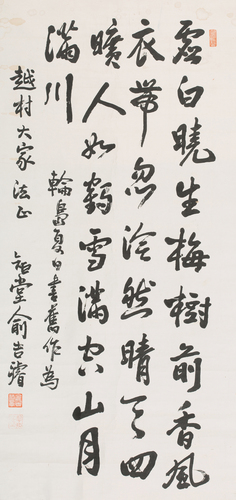 虛白曉生梅樹前香風
衣帶忽泠然晴天四
曠人如鶴雪滿空山月
滿川
輪島夏日書舊作為
越村大家法正
矩堂俞吉濬